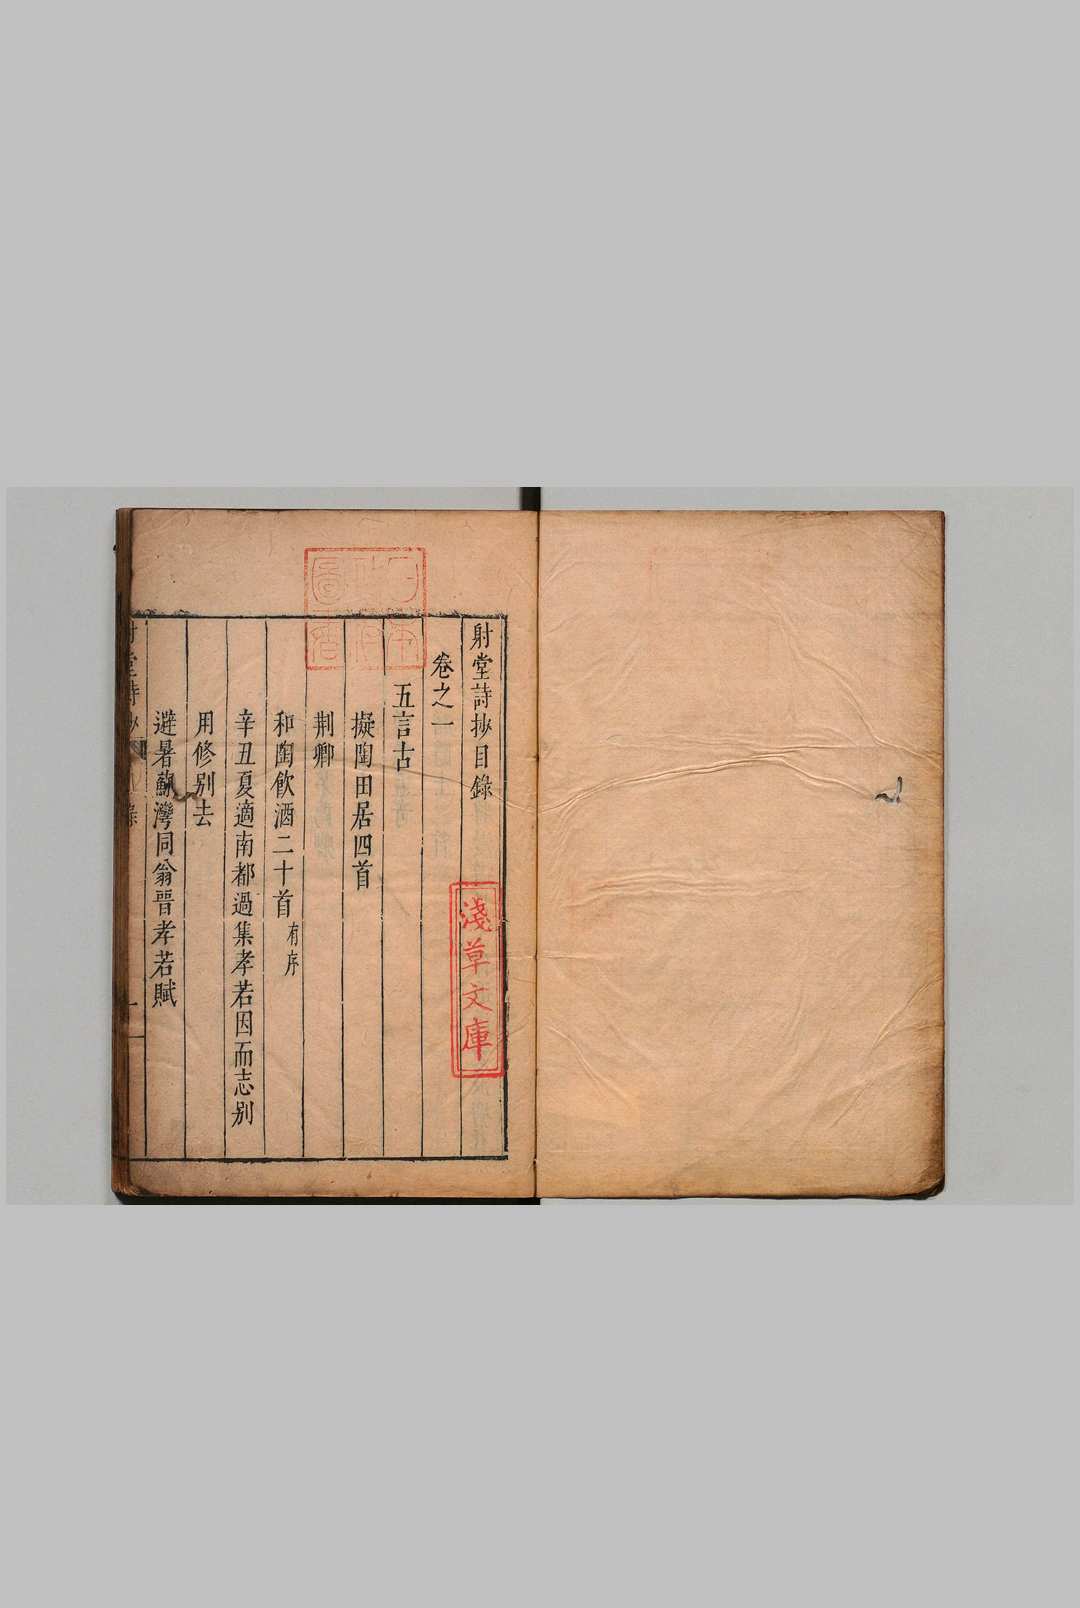 射堂詩抄目錄
卷之一
五言古
擬陶田居四首
荆卿
和陶飲酒二十首有序
辛丑夏適南都過集孝若因而志别
用修别去
避暑蘇灣同翁晉孝若賦
射堂詩抄
淺草文庫
日本政府圖書